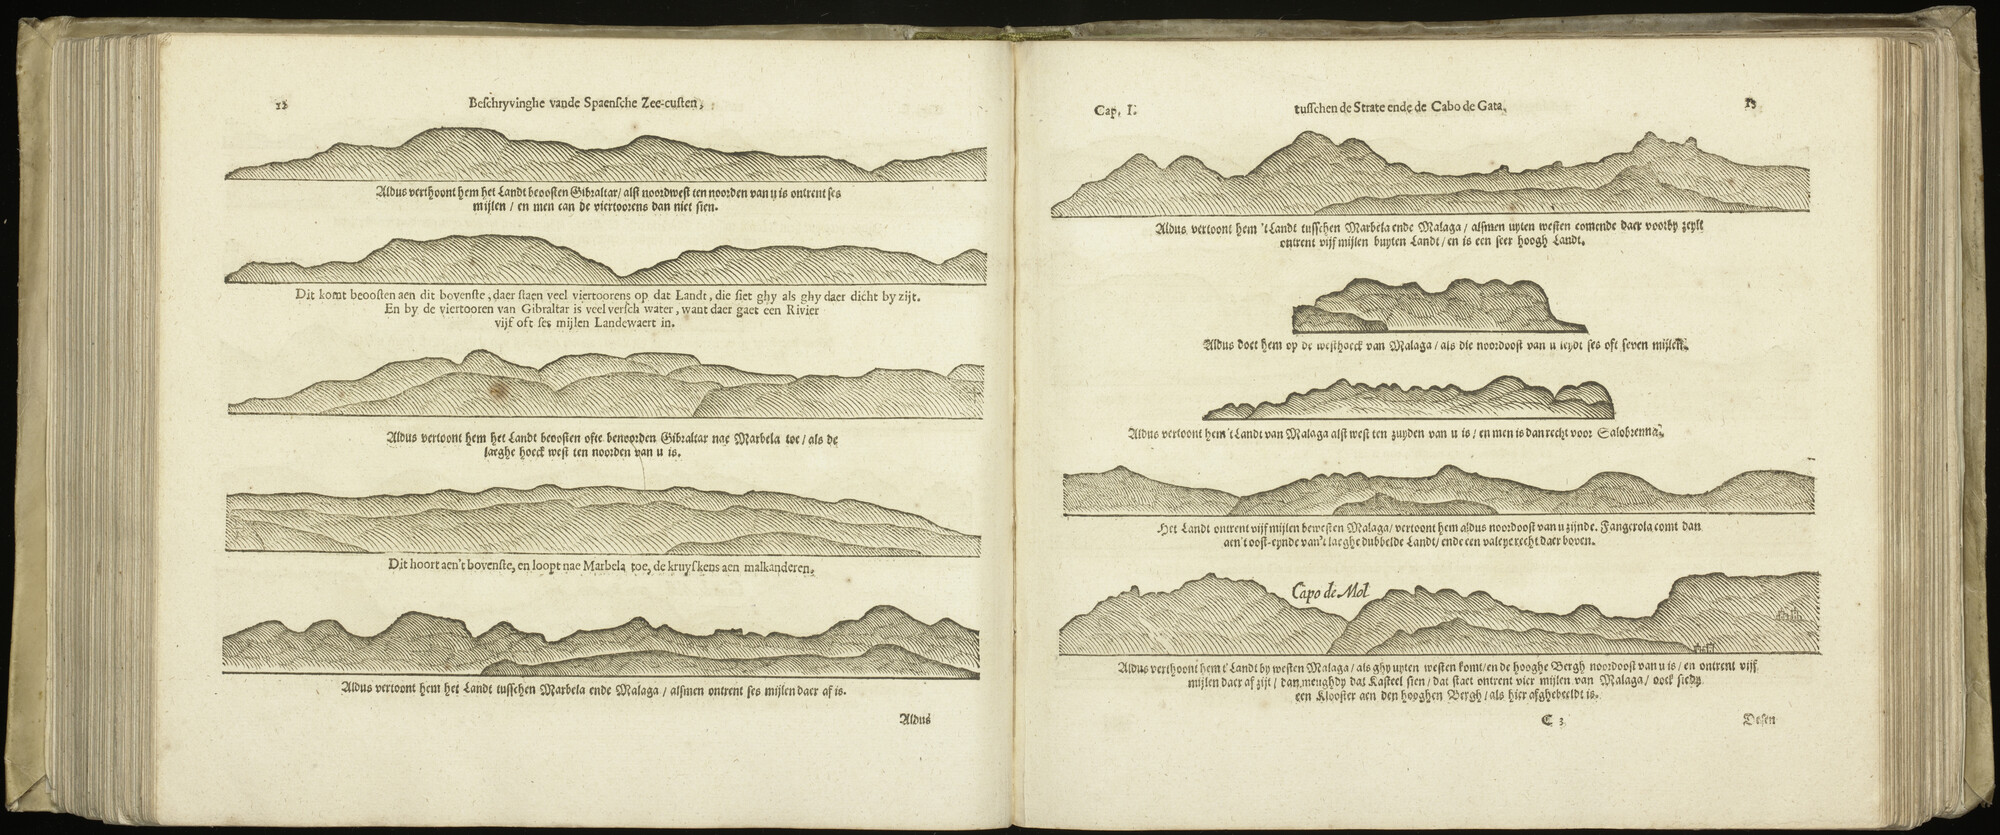 12
Beſchryvinghe vande Spaenſche Zee-cuſten,
Aldus verthoont hem het Landt beooſten Gibraltar/ alſt noordweſt ten noorden van u is ontrent ſes
mijlen / en men can de viertoorens dan niet ſien.
Dit komt beooſten aen dit bovenſte, daer ſtaen veel viertoorens op dat Landt, die ſiet ghy als ghy daer dicht by zijt.
En by de viertooren van Gibraltar is veel verſch water, want daer gaet een Rivier
vijf oft ſes mijlen Landewaert in.
Aldus vertoont hem het Landt beooſten ofte benoorden Gibraltar nae Marbela toe / als de
laeghe hoeck weſt ten noorden van u is.
Dit hoort aen't bovenſte, en loopt nae Marbela toe, de kruyſkens aen malkanderen.
Aldus vertoont hem het Landt tuſſchen Marbela ende Malaga / alſmen ontrent ſes mijlen daer af is.
Aldus
Cap. I.
tuſſchen de Strate ende de Cabo de Gata.
13
Aldus vertoont hem 't Landt tuſſchen Marbela ende Malaga / alſmen uyten weſten comende daer voorby zeylt
ontrent vijf mijlen buyten Landt / en is een ſeer hoogh Landt.
Aldus doet hem op de weſthoeck van Malaga / als die noordooſt van u leydt ſes oft ſeven mijlen.
Aldus vertoont hem 't Landt van Malaga alſt weſt ten zuyden van u is / en men is dan recht voor Salobrenna.
Het Landt ontrent vijf mijlen beweſten Malaga / vertoont hem aldus noordooſt van u zijnde. Fangerola comt dan
aen't ooſt-eynde van't laeghe dubbelde Landt / ende een valeye recht daer boven.
Capo de Mol
Aldus verthoont hem t' Landt by weſten Malaga / als ghy uyten weſten komt / en de hooghe Bergh noordooſt van u is / en ontrent vijf
mijlen daer af zijt / dan meughdy dat Kaſteel ſien / dat ſtaet ontrent vier mijlen van Malaga / oock ſiedy
een Klooſter aen den hooghen Bergh / als hier afghebeeldt is.
C 3
Deſen